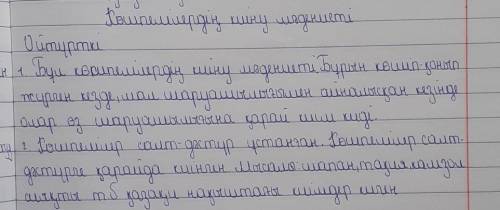 Көшпелілердің киіну мәдениеті
Ойтүрткі
1. Бұл көшпелілердің киіну мәдениеті. Бұрын көшіп-қонып
жүрген кезде, мал шаруашылығымен айналысқан кезінде
олар өз шаруашылығына қарай киім киді.
2. Көшпелілер салт-дәстүр ұстанған. Көшпелілер салт-
дәстүрге қарайда киінген. Мысалы: шапан, тақия, камзол
т.б қазақи нақыштағы киімдер киген